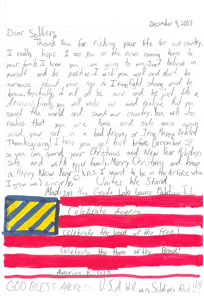 December 9, 2003
Dear Soldiers,
Thank you for risking your life for our country.
I really hope I see you on the news coming home to
your family. I know you are going to win. Just believe in
yourself and be positive. I wish you well and don't be
nervous about your go to Iraq. Fight strong and be
brave. Hopefully it will all be over and be just like a
dream. Finally, you will wake up and realize that you
saved the world and saved our country. You will also
realize that you are home and safe once again
and your not in a bad place, or Iraq. Happy Belated
Thanksgiving! I hope you get back before December 25
so you can spend your Christmas and New Year Holidays
safe and with your family. Merry Christmas and have
a Happy New Year! P.S. I want to be in the air force when
I grow up!
sincerely,
United We Stand
Madison 4th Grade Lake Louise Palatine IL
Celebrate America
Celebrate the Land of the Free!
Celebrate the Home of the Brave!
America Rocks
GOD BLESS AMERICA U.S.A. Will win Soldiers Rock!!!